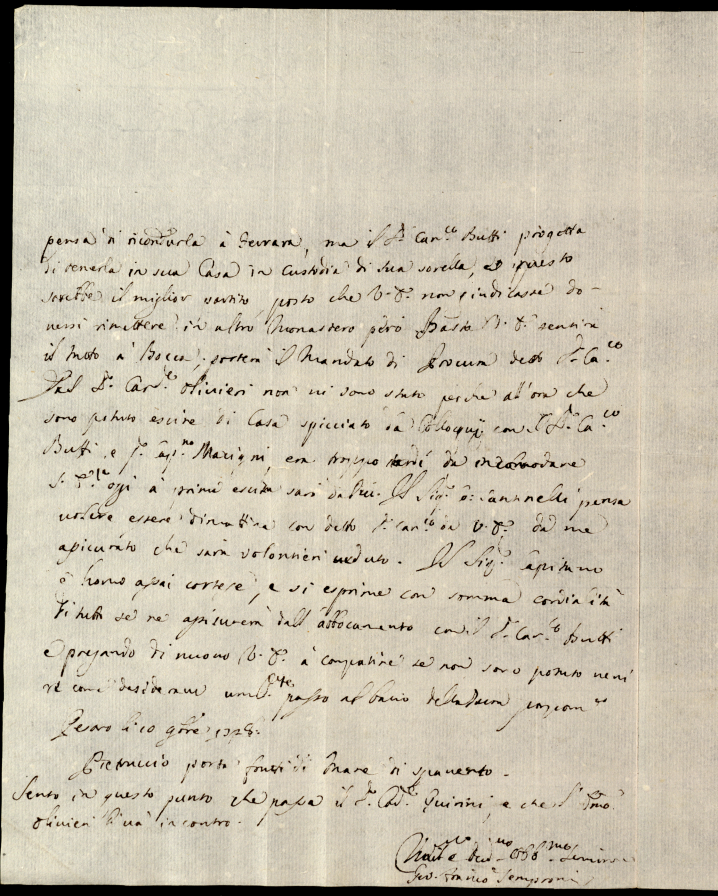 pensa di ricondurla à Ferrara, ma il S.r Can.co Butti progetta
di tenerla in sua Casa in custodia di sua sorella, e questo
sarebbe il miglior partito, posto che V.S. non giudicasse do-
versi rimettere in altro Monastero però Basta V.S. sentirà
il tutto à Bocca, porterà il Mandato di Procura detto S.r Ca.co
Dal S.r Card.le Olivieri non vi sono stato perche all'ora che
sono potuto escire di Casa spicciato da Colloquij con il S.r Ca.co
Butti, e S.r Cap.no Marigni, era troppo tardi da incomodare
S. Em.za oggi à prima escita sarò da lui. Il Sig.r Santinelli pensa
volere essere dimattina con detto S.r Can.co da V.S. da me
assicurato che sarà volontieri veduto. Il Sig.r Capitano
è homo assai cortese, e si esprime con somma cordialità
di tutto se ne assicurerà dall'abboccamento con il S.r Can.co Butti
e pregando di nuovo V.S. à compatire se non sono potuto veni
re come desideravo um.te passo al bacio della Sacra
Pesaro li 10 9bre 1728.
Pietruccio porta
Sento in questo punto che passa il S.r Card. Quirini, e che l'Em.o
Olivieri li và incontro.